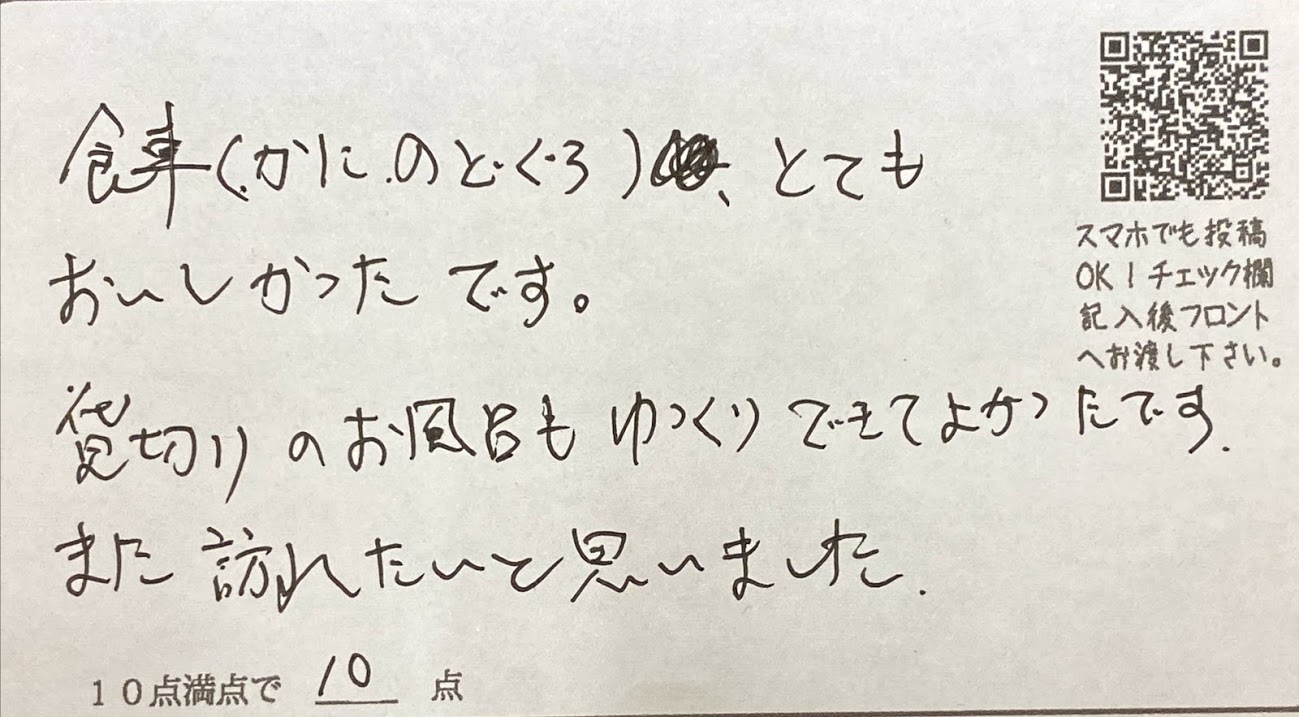 食事(かに.のどぐろ)、とても
おいしかったです。
貸切りのお風呂もゆっくりできてよかったです.
また訪れたいと思いました.
10点満点で 10 点
スマホでも投稿
OK!チェック欄
記入後フロント
へお渡し下さい。